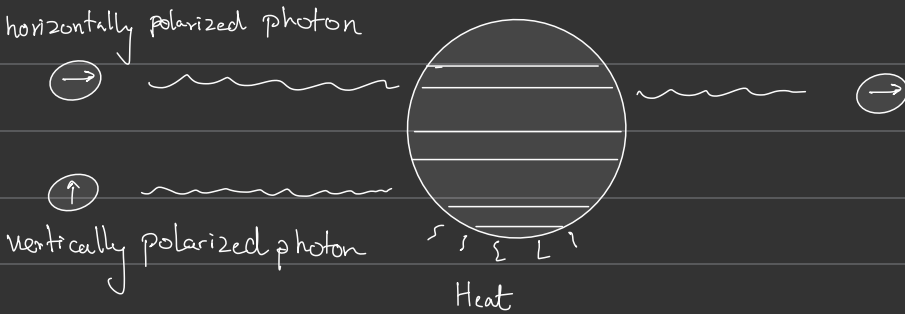 horizontally polarized photon
vertically polarized photon
Heat